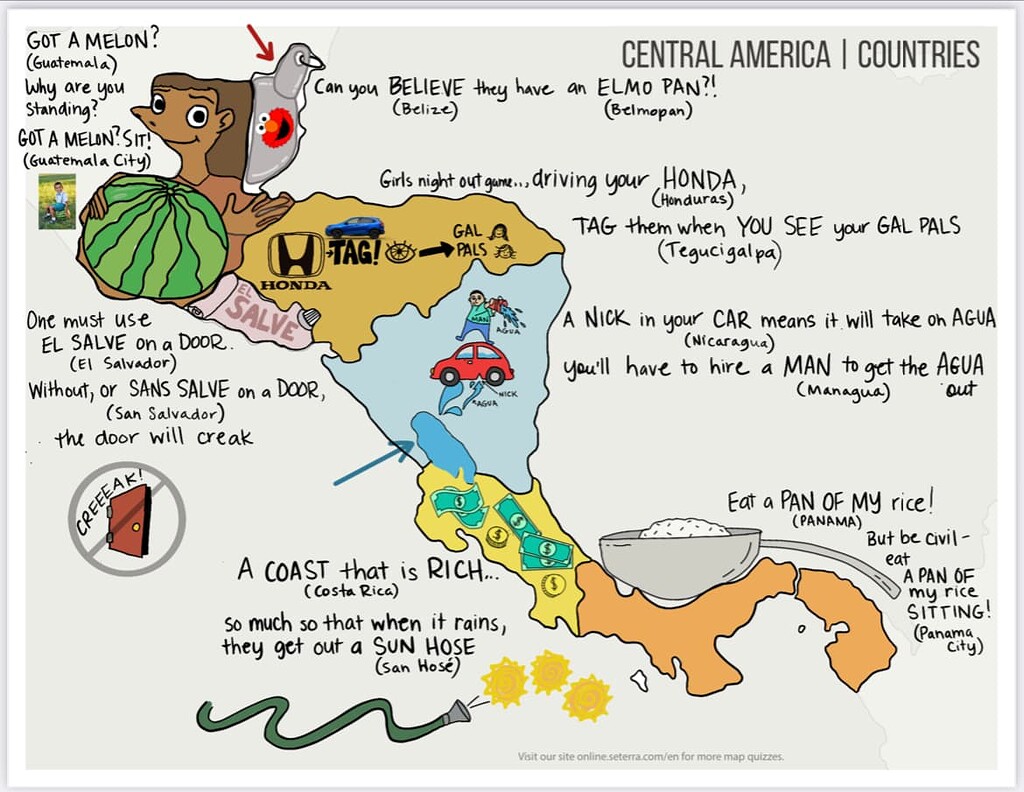 CENTRAL AMERICA | COUNTRIES
GOT A MELON?
(Guatemala)
Why are you
standing?
GOT A MELON? SIT!
(Guatemala City)
Can you BELIEVE they have an ELMO PAN?!
(Belize) (Belmopan)
Girls night out game..., driving your HONDA,
(Honduras)
TAG them when YOU SEE your GAL PALS
(Tegucigalpa)
HONDA
TAG!
GAL
PALS
EL
SALVE
One must use
EL SALVE on a DOOR.
(El Salvador)
Without, or SANS SALVE on a DOOR,
(San Salvador)
the door will creak
CREEEAK!
MAN
AGUA
NICK
AGUA
A NICK in your CAR means it will take on AGUA
(Nicaragua)
you'll have to hire a MAN to get the AGUA
(Managua) out
A COAST that is RICH...
(Costa Rica)
so much so that when it rains,
they get out a SUN HOSE
(San Hosé)
Eat a PAN OF MY rice!
(PANAMA)
But be civil-
eat
A PAN OF
my rice
SITTING!
(Panama
City)
Visit our site online.seterra.com/en for more map quizzes.